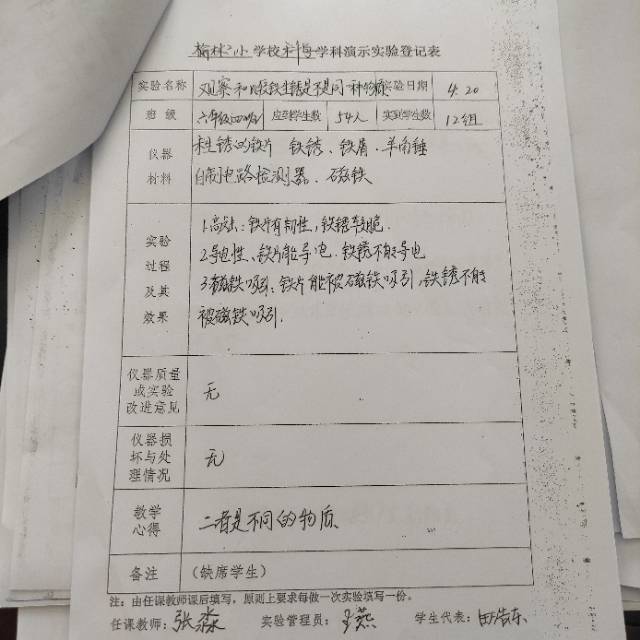 榆林小学校科学学科演示实验登记表
实验名称 观察和比较铁生锈是不是同一种物质 实验日期 4.20
班级 六年级 应到学生数 54人 实到学生数 12组
仪器 未生锈的铁片 铁锈、铁屑、羊角锤
材料 自制电路检测器、磁铁
实验 1.敲击:铁片有韧性,铁锈较脆.
过程 2.导电性、铁片能导电.铁锈不能导电
及其 3.磁铁吸引、铁片能被磁铁吸引,铁锈不能
效果 被磁铁吸引.
仪器质量
或实验 无
改进意见
仪器损
坏与处 无
理情况
教学 二者是不同的物质、
心得
备注 (缺席学生)
注:由任课教师课后填写,原则上要求每做一次实验填写一份。
任课教师:张淼 实验管理员:王燕 学生代表:田浩东